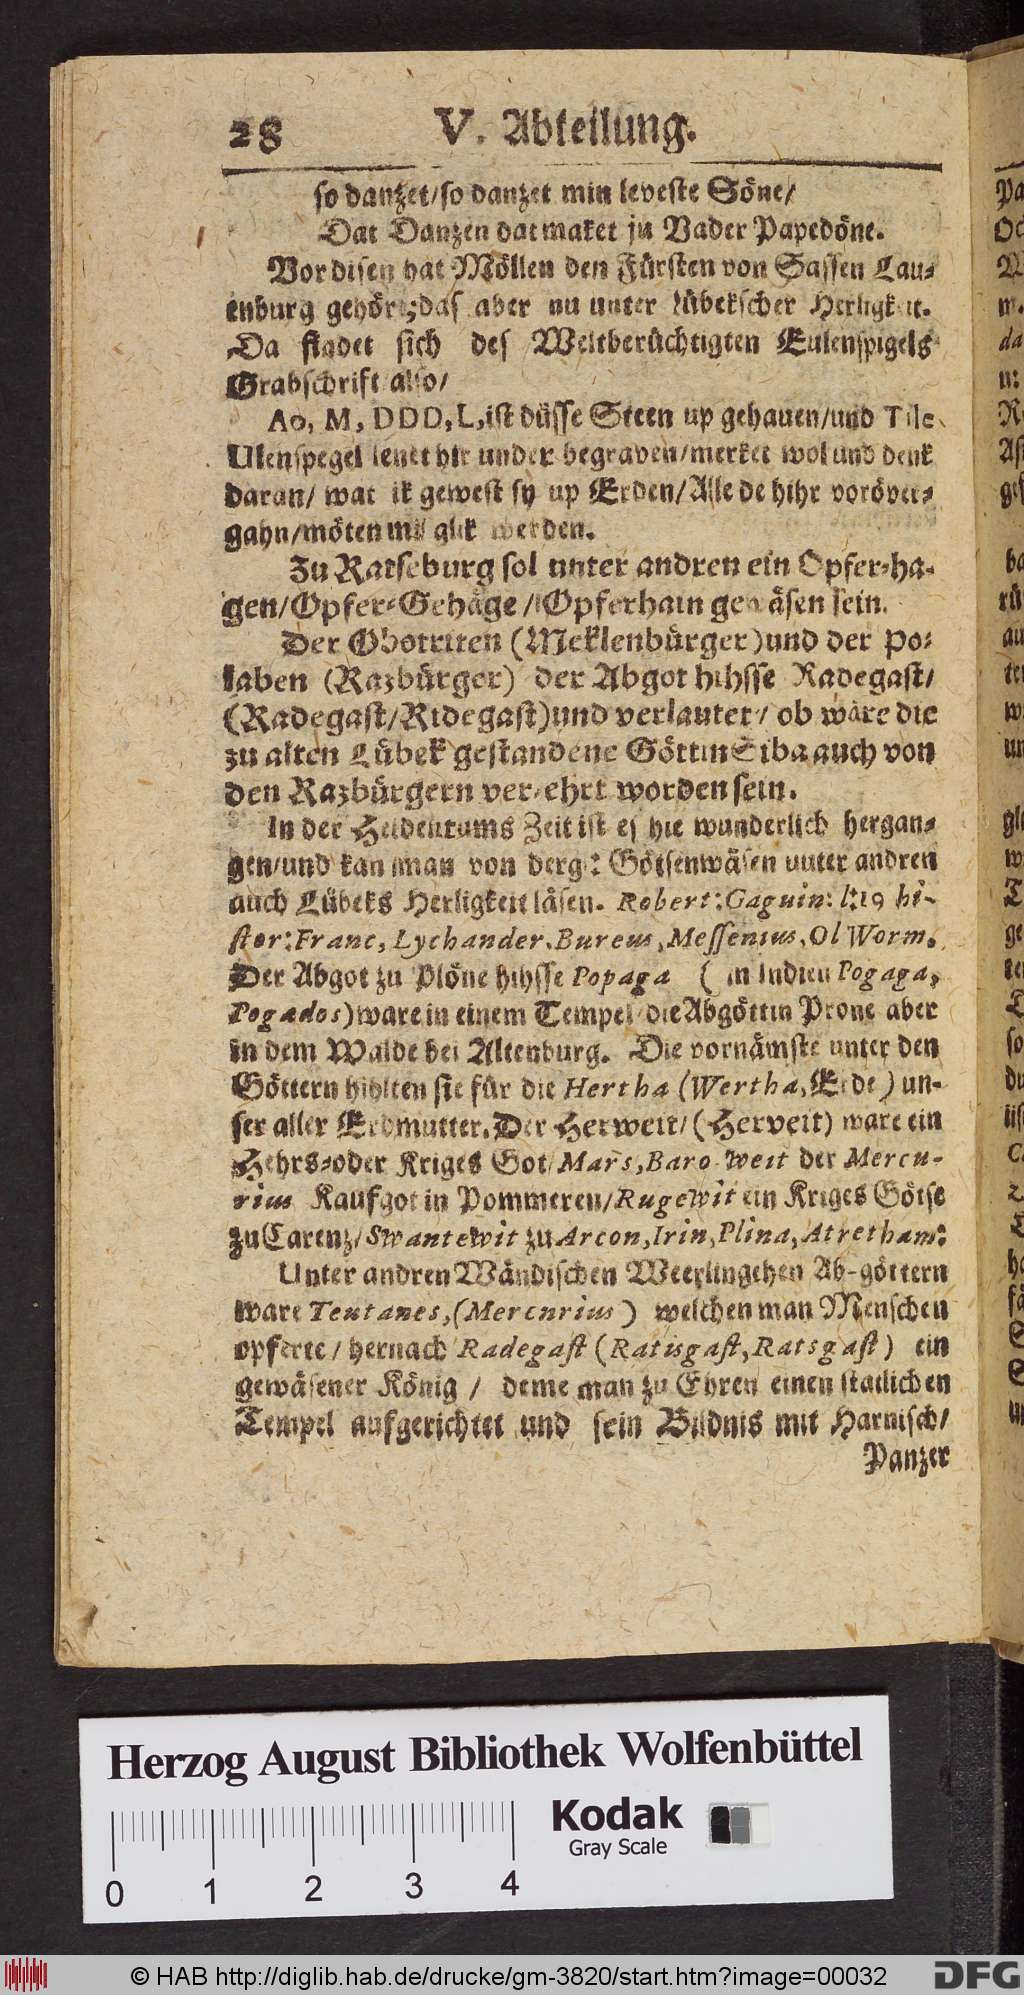 28 V. Abteilung.
so danzet/so danzet min leveste Söne/
Dat Danzen dat maket ju Vader Papedöne.
Vor disen hat Möllen den Fürsten von Sassen Lau-
enburg gehört;das aber nu unter Lübekscher Herligkeit.
Da findet sich des Weltberüchtigten Eulenspigels
Grabschrift also/
Ao, M, DDD, L, ist düsse Steen up gehauen/und Tile
Ulenspegel lenet hir under begraven/merket wol und denk
daran/ wat ik gewest sy up Erden/Alle de hihr voröver-
gahn/möten mi glik werden.
Zu Ratseburg sol unter andren ein Opfer-ha-
gen/Opfer-Gehäge/Opferhain gewäsen sein.
Der Obotriten (Meklenbürger)und der Po-
laben (Razbürger) der Abgot hihsse Radegast/
(Radegast/Ridegast)und verlautet/ ob wäre die
zu alten Lübek gestandene Göttin Siba auch von
den Razbürgern ver-ehrt worden sein.
In der Heidentums Zeit ist es hie wunderlich hergan-
gen/und kan man von derg: Götsenwäsen unter andren
auch Lübeks Herligkeit läsen. Robert: Gaguin: l:19 hi-
stor: Franc, Lychander, Bureus, Messenius, Ol Worm.
Der Abgot zu Plöne hihsse Popaga ( in Indien Pogaga,
Pogados) ware in einem Tempel/die Abgöttin Prone aber
in dem Walde bei Altenburg. Die vornämste unter den
Göttern hihlten sie für die Hertha (Wertha, Erde) un-
ser aller Erdmutter. Der Herweit/(Herveit) ware ein
Hehrs-oder Kriges Got/Mars, Baro-weit der Mercu-
rius Kaufgot in Pommeren/Rugewit ein Kriges Götse
zu Carenz/Swantewit zu Arcon, Irin, Plina, Atretham:
Unter andren Wändischen Weerlingehen Ab-göttern
ware Teutanes, (Mercnrius) welchen man Menschen
opferte/ hernach Radegast (Ratisgast, Ratsgast) ein
gewäsener König / deme man zu Ehren einen statlichen
Tempel aufgerichtet und sein Bildnis mit Harnisch/
Panzer
Herzog August Bibliothek Wolfenbüttel
Kodak
Gray Scale
0 1 2 3 4
© HAB http://diglib.hab.de/drucke/gm-3820/start.htm?image=00032
DFG